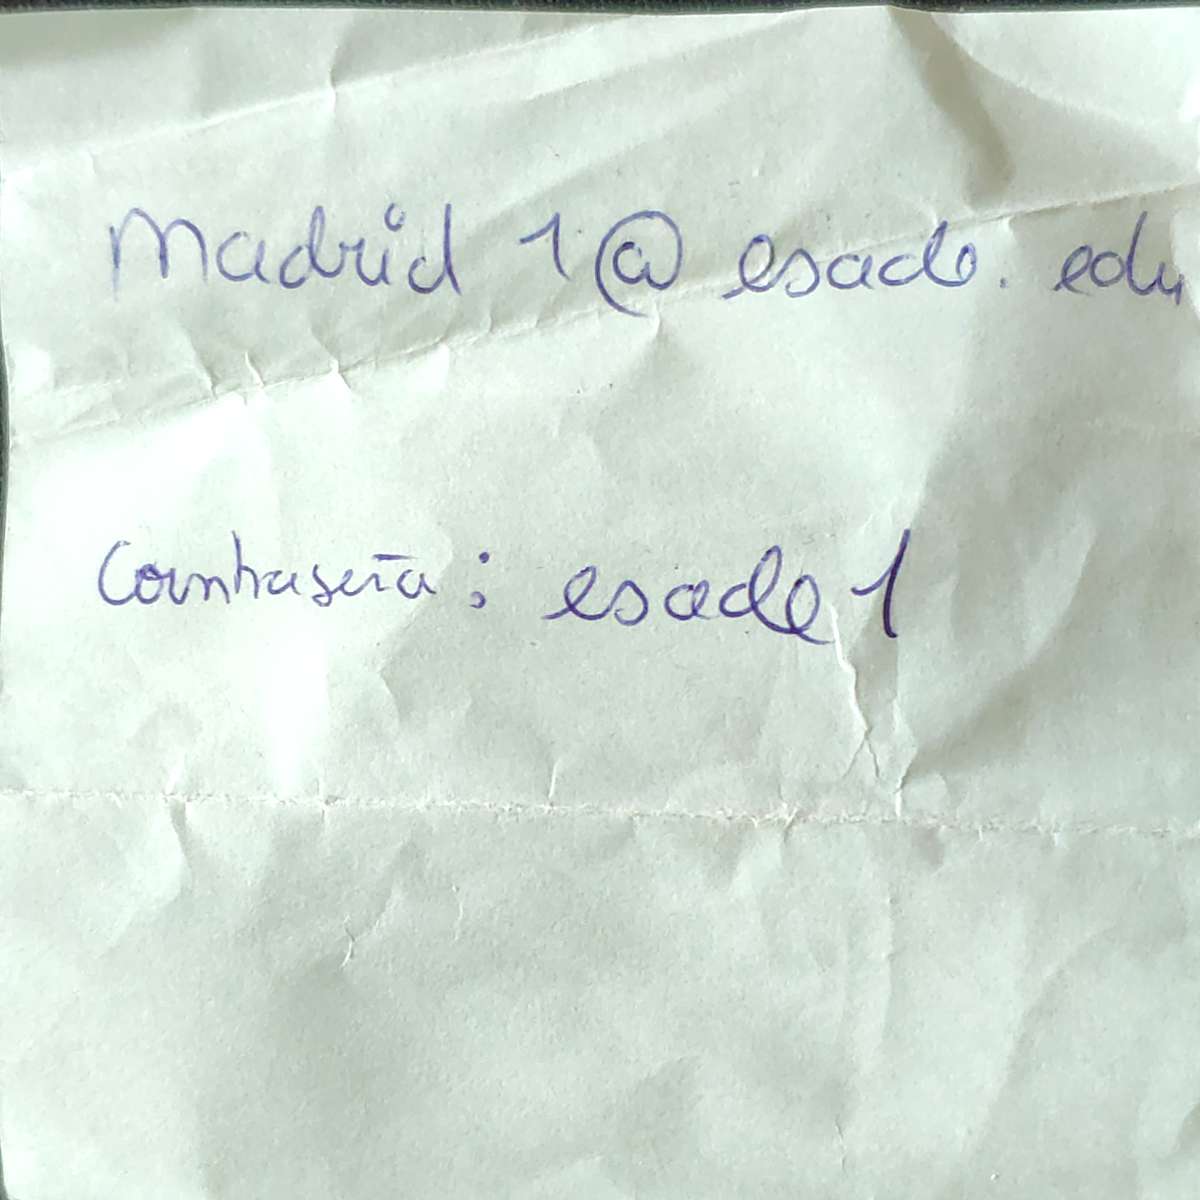 Madrid 1@esade.edu
Contraseña: esade1